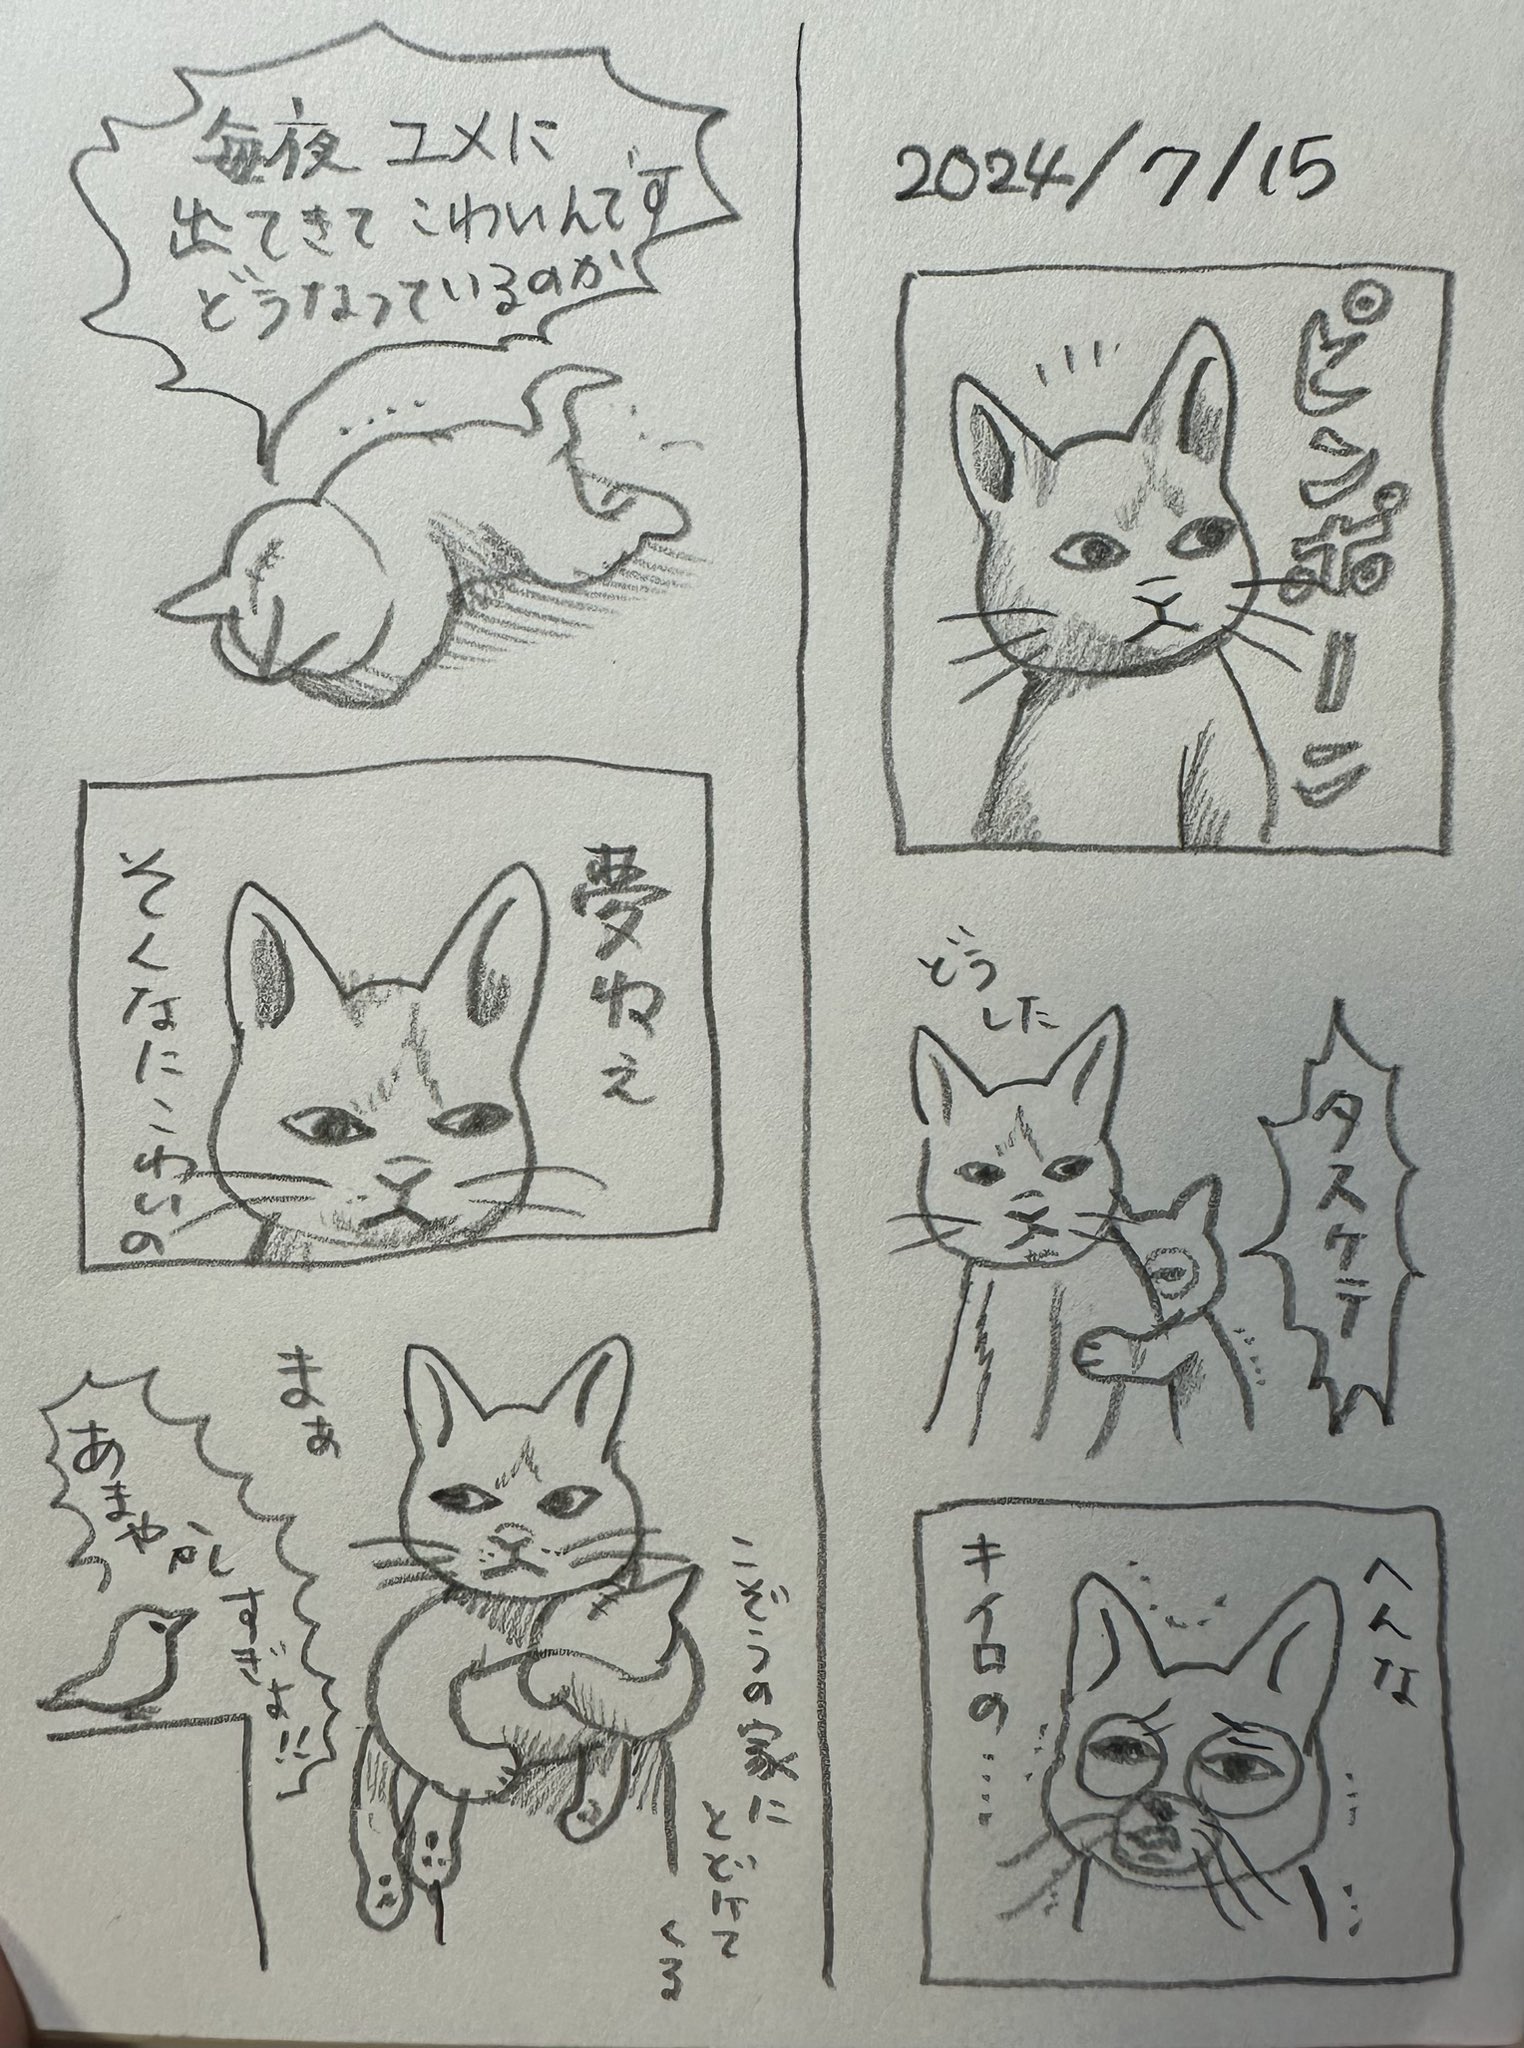 2024/7/15
ピンポーン
どう
した
タスケテ
へんな
キイロの……
毎夜 ユメに
出てきて こわいんです
どうなっているのか
夢ねえ
そんなにこわいの
まぁ
こぞうの家に
とどけて
くる
あまやかし
すぎよ!!